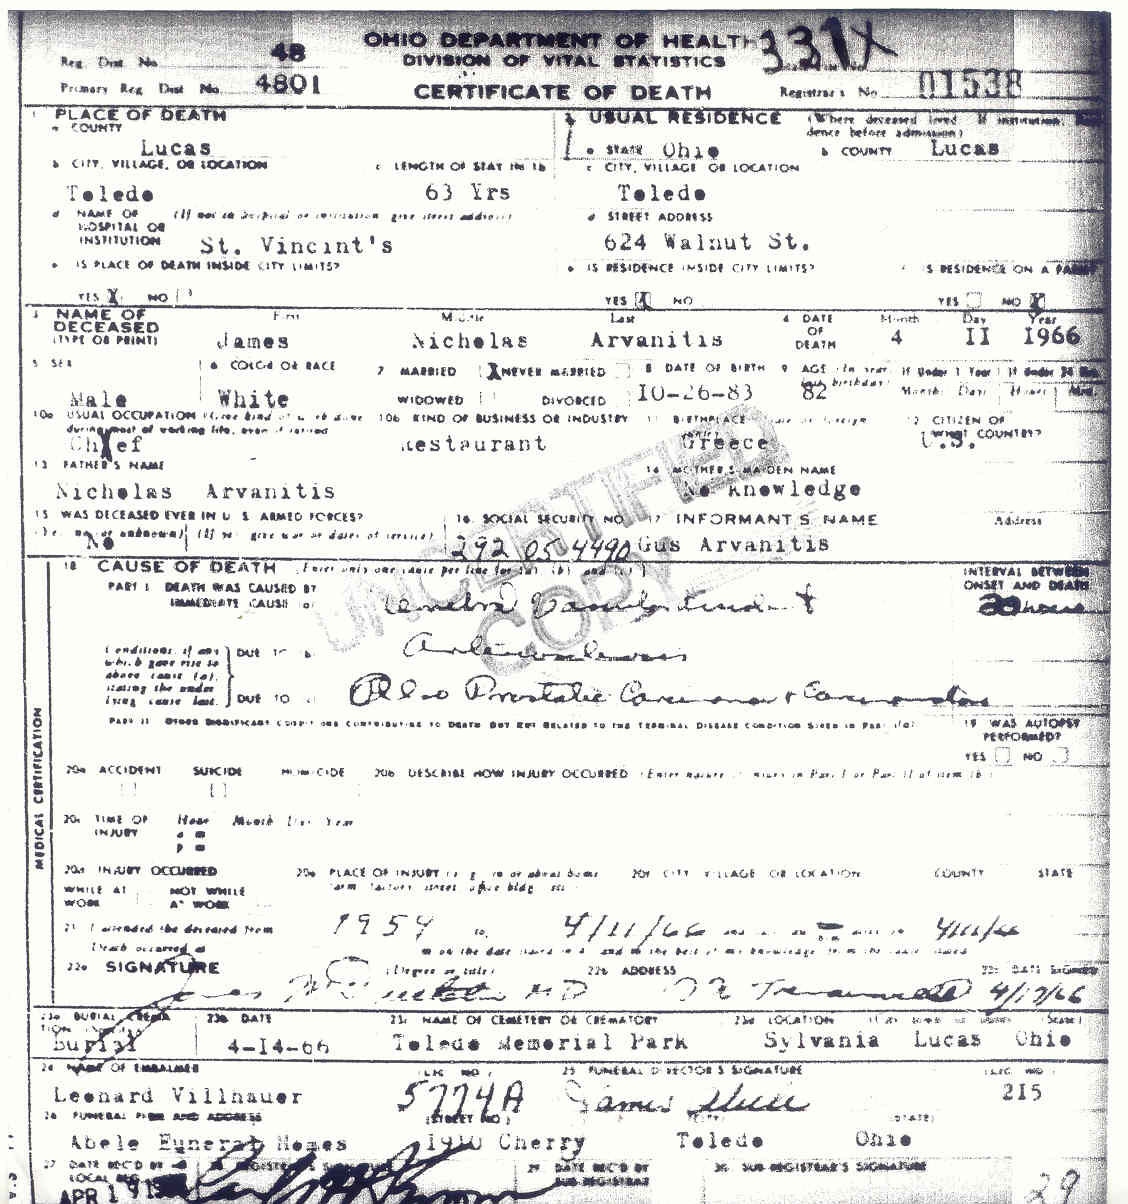 OHIO DEPARTMENT OF HEALTH
337X
Reg. Dist. No. 48
DIVISION OF VITAL STATISTICS
Primary Reg. Dist. No. 4801
CERTIFICATE OF DEATH
Registrar's No. 01538
1. PLACE OF DEATH
2. USUAL RESIDENCE (Where deceased lived. If institution: Residence before admission)
a. COUNTY
Lucas
a. STATE Ohio
b. COUNTY Lucas
b. CITY, VILLAGE, OR LOCATION
c. LENGTH OF STAY IN 1b
c. CITY, VILLAGE OR LOCATION
Toledo 63 Yrs Toledo
d. NAME OF HOSPITAL OR INSTITUTION (If not in hospital or institution give street address)
d. STREET ADDRESS
St. Vincint's 624 Walnut St.
e. IS PLACE OF DEATH INSIDE CITY LIMITS?
e. IS RESIDENCE INSIDE CITY LIMITS?
f. IS RESIDENCE ON A FARM?
YES X NO
YES X NO
YES NO X
3. NAME OF DECEASED (TYPE OR PRINT)
First Middle Last
4. DATE OF DEATH Month Day Year
James Nicholas Arvanitis 4 II 1966
5. SEX
6. COLOR OR RACE
7. MARRIED X NEVER MARRIED
WIDOWED DIVORCED
8. DATE OF BIRTH
9. AGE (In years last birthday)
If Under 1 Year If Under 24 Hrs.
Months Days Hours Min.
Male White IO-26-83 82
10a. USUAL OCCUPATION (Give kind of work done during most of working life, even if retired)
10b. KIND OF BUSINESS OR INDUSTRY
11. BIRTHPLACE (State or foreign country)
12. CITIZEN OF WHAT COUNTRY?
Chxef Restaurant Greece U.S.
13. FATHER'S NAME
14. MOTHER'S MAIDEN NAME
Nicholas Arvanitis No Knowledge
15. WAS DECEASED EVER IN U. S. ARMED FORCES?
16. SOCIAL SECURITY NO.
17. INFORMANT'S NAME Address
(Yes, no, or unknown) (If yes, give war or dates of service)
No 292 05 4490 Gus Arvanitis
UNCERTIFIED COPY
18. CAUSE OF DEATH (Enter only one cause per line for (a), (b), and (c).)
INTERVAL BETWEEN ONSET AND DEATH
PART I. DEATH WAS CAUSED BY
IMMEDIATE CAUSE (a) hours
Conditions, if any which gave rise to above cause (a), stating the underlying cause last.
DUE TO (b)
DUE TO (c) Also Prostatic Carcinoma +
PART II. OTHER SIGNIFICANT CONDITIONS CONTRIBUTING TO DEATH BUT NOT RELATED TO THE TERMINAL DISEASE CONDITION GIVEN IN PART I(a)
19. WAS AUTOPSY PERFORMED?
YES NO
20a. ACCIDENT SUICIDE HOMICIDE
20b. DESCRIBE HOW INJURY OCCURRED (Enter nature of injury in Part I or Part II of item 18.)
20c. TIME OF INJURY Hour Month Day Year
a. m.
p. m.
MEDICAL CERTIFICATION
20d. INJURY OCCURRED
WHILE AT WORK NOT WHILE AT WORK
20e. PLACE OF INJURY (e.g., in or about home, farm, factory, street, office bldg., etc.)
20f. CITY, VILLAGE, OR LOCATION COUNTY STATE
21. I attended the deceased from 1954 to 4/11/66 4/11/66
Death occurred at m on the date stated above and to the best of my knowledge from the causes stated
22a. SIGNATURE (Degree or title)
22b. ADDRESS
22c. DATE SIGNED
James MD 4/12/66
23a. BURIAL, CREMATION
23b. DATE
23c. NAME OF CEMETERY OR CREMATORY
23d. LOCATION (State)
Burial 4-I4-66 Toledo Memorial Park Sylvania Lucas Ohio
24. NAME OF EMBALMER (LIC. NO.)
25. FUNERAL DIRECTOR'S SIGNATURE (LIC. NO.)
Leonard Villnauer 5774A James 2I5
26. FUNERAL FIRM AND ADDRESS (STREET NO.) (CITY) (STATE)
Abele Funeral Homes 1910 Cherry Toledo Ohio
27. DATE REC'D BY LOCAL REG.
28. REGISTRAR'S SIGNATURE
29. DATE REC'D BY SUB-REGISTRAR
30. SUB-REGISTRAR'S SIGNATURE
APR 1